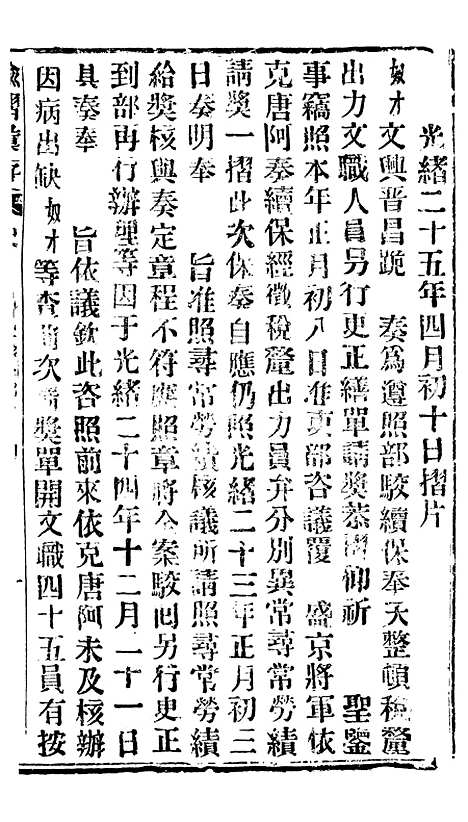 光緒二十五年四月初十日摺片
奴才文興晉昌跪 奏爲遵照部駁續保奉天整頓稅釐
出力文職人員另行更正繕單請獎恭摺仰祈 聖鑒
事竊照本年正月初八日准吏部咨議覆 盛京將軍依
克唐阿奏續保經徵稅釐出力員弁分別異常尋常勞績
請獎一摺此次保奏自應仍照光緒二十三年正月初三
日奏明奉 旨准照尋常勞績核議所請照尋常勞績
給獎核與奏定章程不符應照章將全案駁回另行更正
到部再行辦理等因于光緒二十四年十二月二十一日
具奏奉 旨依議欽此咨照前來依克唐阿未及核辦
因病出缺奴才等查前次請獎單開文職四十五員有按